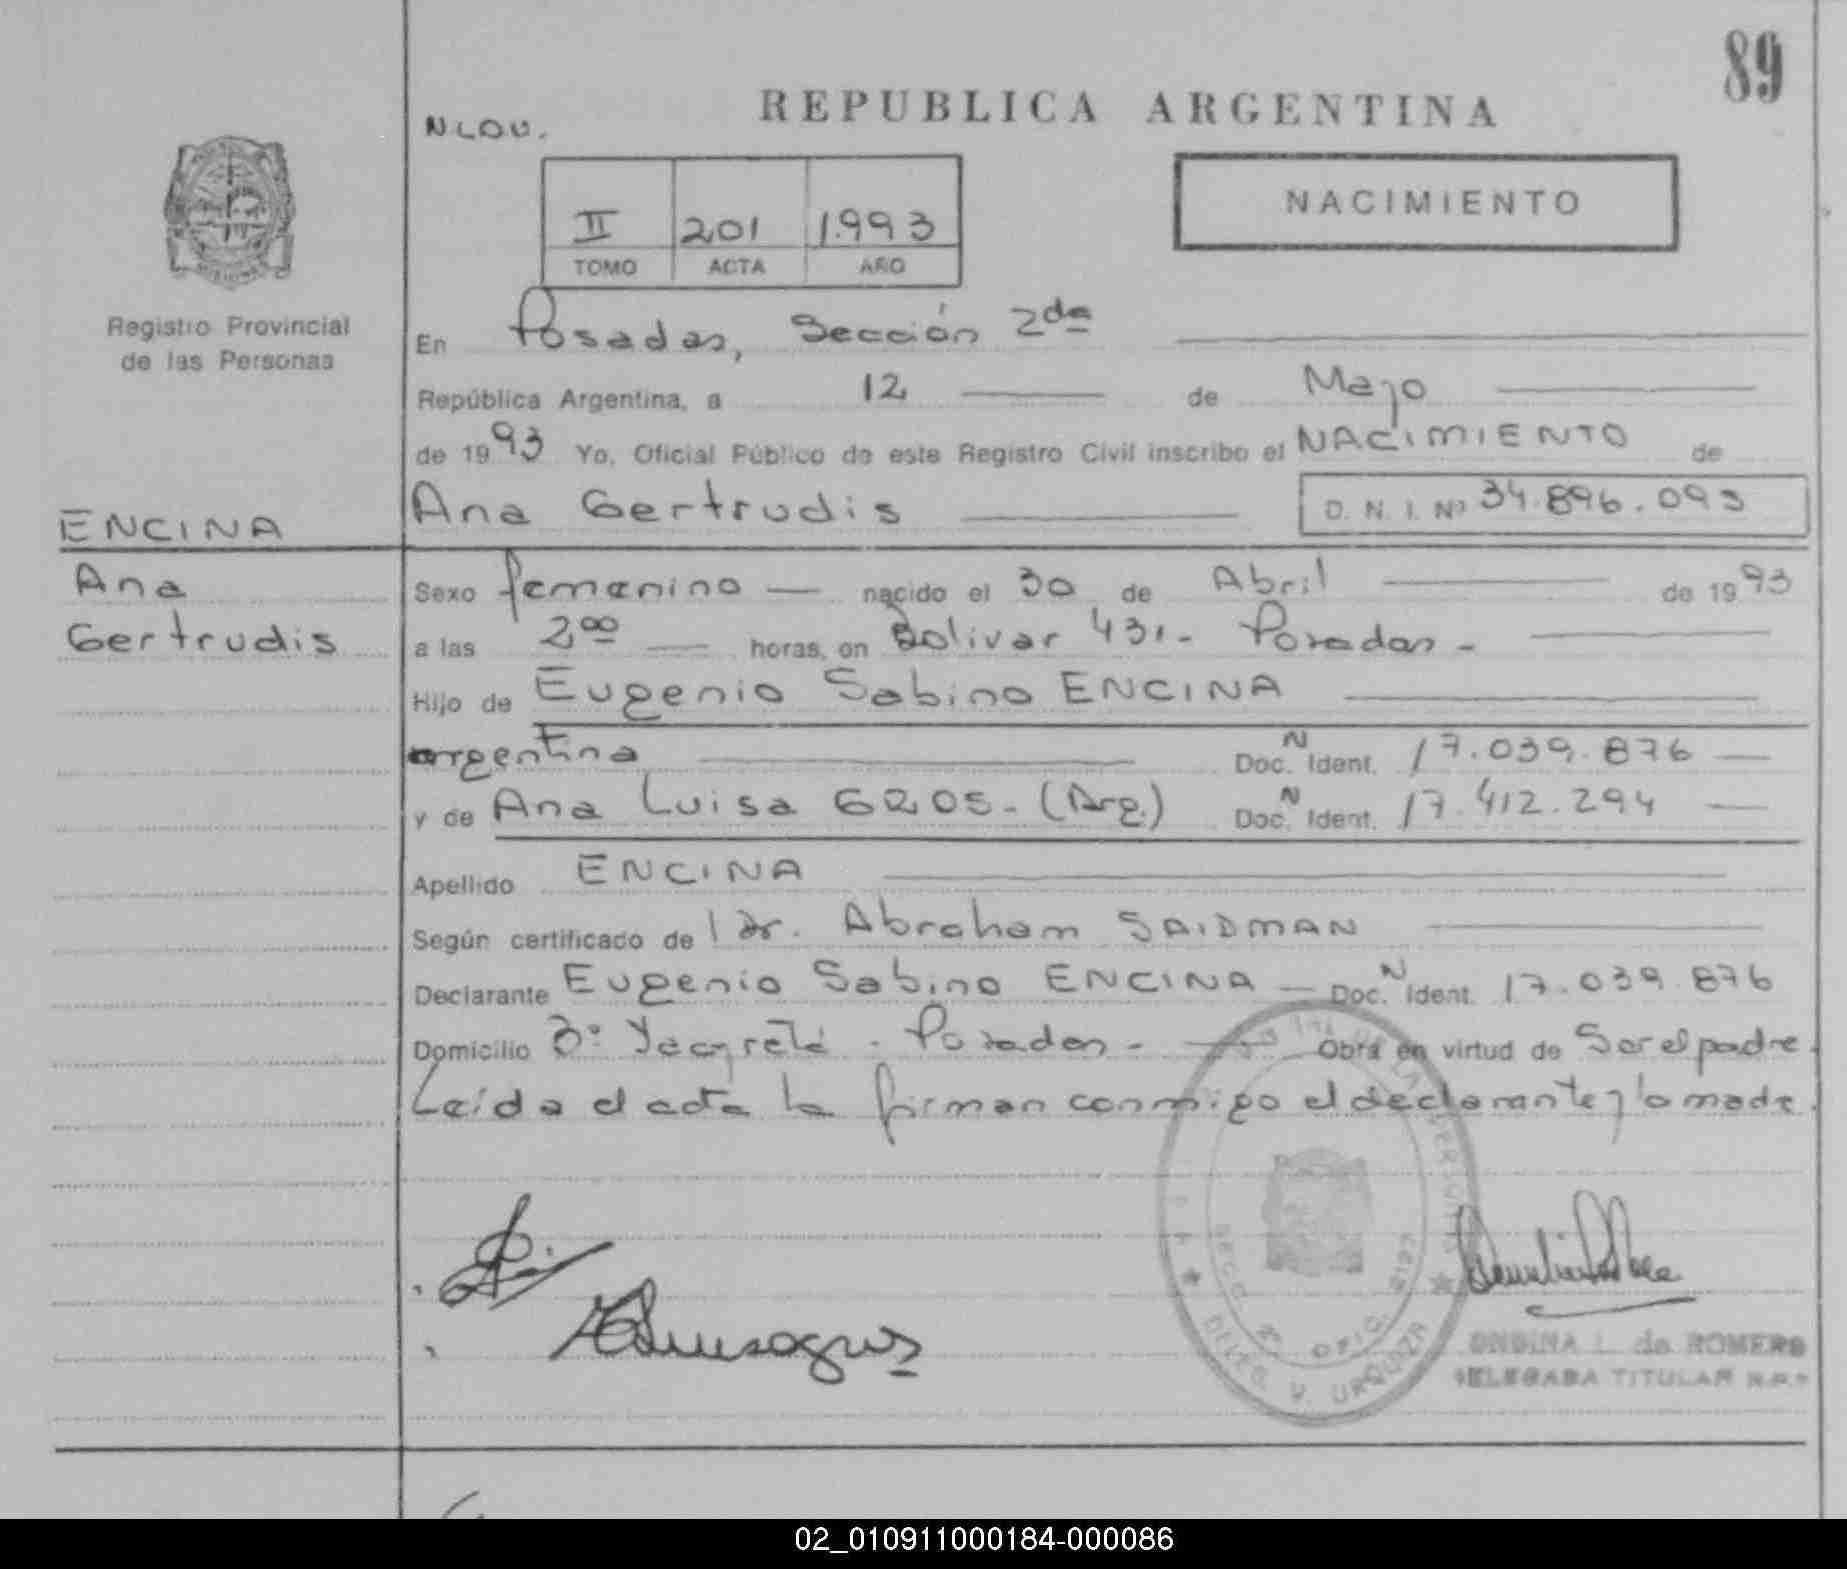 89
REPUBLICA ARGENTINA
NLOU.
NACIMIENTO
II 201 1.993
TOMO ACTA AÑO
Registro Provincial
de las Personas
En Posadas, Sección 2da
República Argentina, a 12 de Mayo
de 1993 Yo, Oficial Público de este Registro Civil inscribo el NACIMIENTO de
ENCINA
Ana Gertrudis D. N. I. Nº 34.896.093
Ana
Gertrudis
Sexo femenino nacido el 30 de Abril de 1993
a las 2 00 horas, en Bolivar 431- Posadas -
Hijo de Eugenio Sabino ENCINA
argentina Doc. N Ident. 17.039.876
y de Ana Luisa (Arg.) Doc. N Ident. 17.412.294
Apellido ENCINA
Según certificado de l dr. Abraham SAIDMAN
Declarante Eugenio Sabino ENCINA Doc. N Ident. 17.039.876
Domicilio Bº Yacyretá - Posadas - Obra en virtud de Ser el padre.
Leída el acta la firman conmigo el declarante y la madre.
DELEG. V. URQUIZA
SECC. 2ª OFIC.
ONDINA L. de ROMERO
DELEGADA TITULAR R.P.
02_010911000184-000086